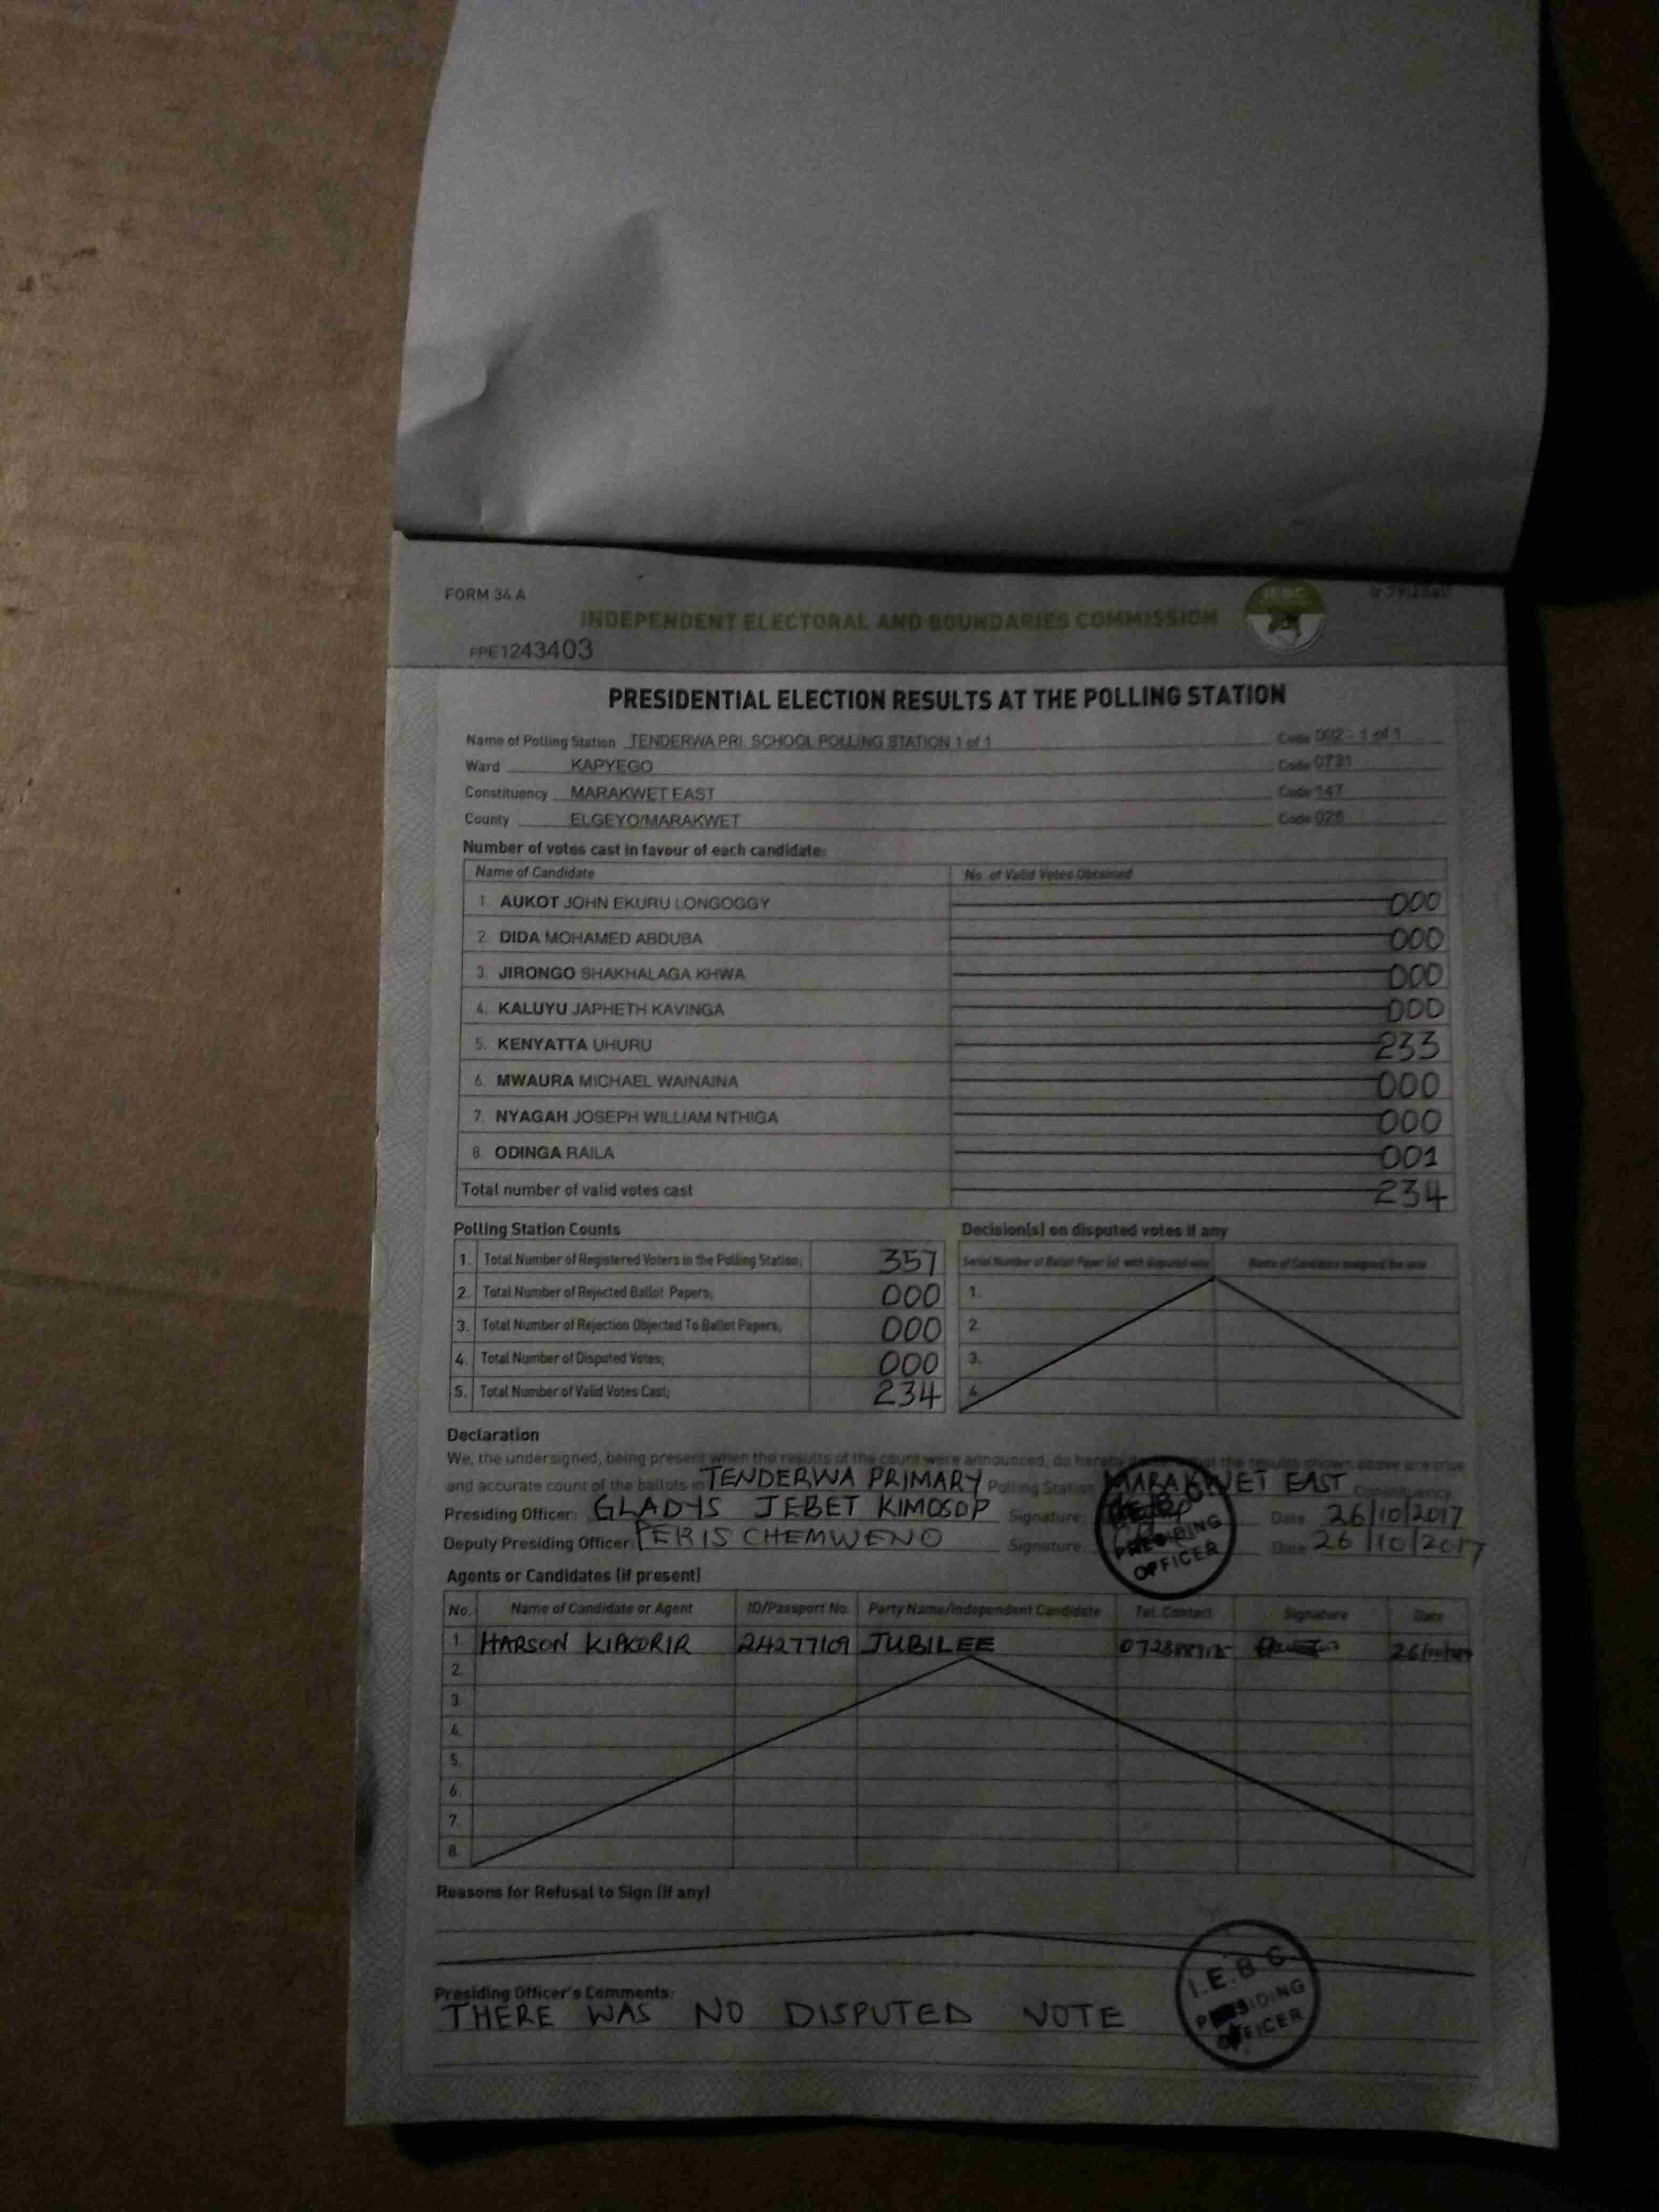 FORM 34 A
INDEPENDENT ELECTORAL AND BOUNDARIES COMMISSION
FPE1243403
PRESIDENTIAL ELECTION RESULTS AT THE POLLING STATION
Name of Polling Station TENDERWA PRI. SCHOOL POLLING STATION 1 of 1 Code 002 - 1 of 1
Ward KAPYEGO Code 0731
Constituency MARAKWET EAST Code 147
County ELGEYO/MARAKWET Code 028
Number of votes cast in favour of each candidate:
Name of Candidate No. of Valid Votes Obtained
1. AUKOT JOHN EKURU LONGOGGY 000
2. DIDA MOHAMED ABDUBA 000
3. JIRONGO SHAKHALAGA KHWA 000
4. KALUYU JAPHETH KAVINGA 000
5. KENYATTA UHURU 233
6. MWAURA MICHAEL WAINAINA 000
7. NYAGAH JOSEPH WILLIAM NTHIGA 000
8. ODINGA RAILA 001
Total number of valid votes cast 234
Polling Station Counts
1. Total Number of Registered Voters in the Polling Station; 357
2. Total Number of Rejected Ballot Papers; 000
3. Total Number of Rejection Objected To Ballot Papers; 000
4. Total Number of Disputed Votes; 000
5. Total Number of Valid Votes Cast; 234
Decision(s) on disputed votes if any
Serial Number of Ballot Paper (s) with disputed vote Name of Candidate assigned the vote
1.
2.
3.
4.
Declaration
We, the undersigned, being present when the results of the count were announced, do hereby that the results shown above are true
and accurate count of the ballots in TENDERWA PRIMARY Polling Station MARAKWET EAST Constituency
Presiding Officer: GLADYS JEBET KIMOSOP Signature: Date 26/10/2017
Deputy Presiding Officer: PERIS CHEMWENO Signature: Date 26/10/2017
I.E.B.C
PRESIDING
OFFICER
Agents or Candidates (if present)
No. Name of Candidate or Agent ID/Passport No. Party Name/Independent Candidate Tel. Contact Signature Date
1. HARSON KIPKORIR 24277109 JUBILEE
2.
3.
4.
5.
6.
7.
8.
Reasons for Refusal to Sign (if any)
Presiding Officer's Comments:
THERE WAS NO DISPUTED VOTE
I.E.B.C.
PRESIDING
OFFICER